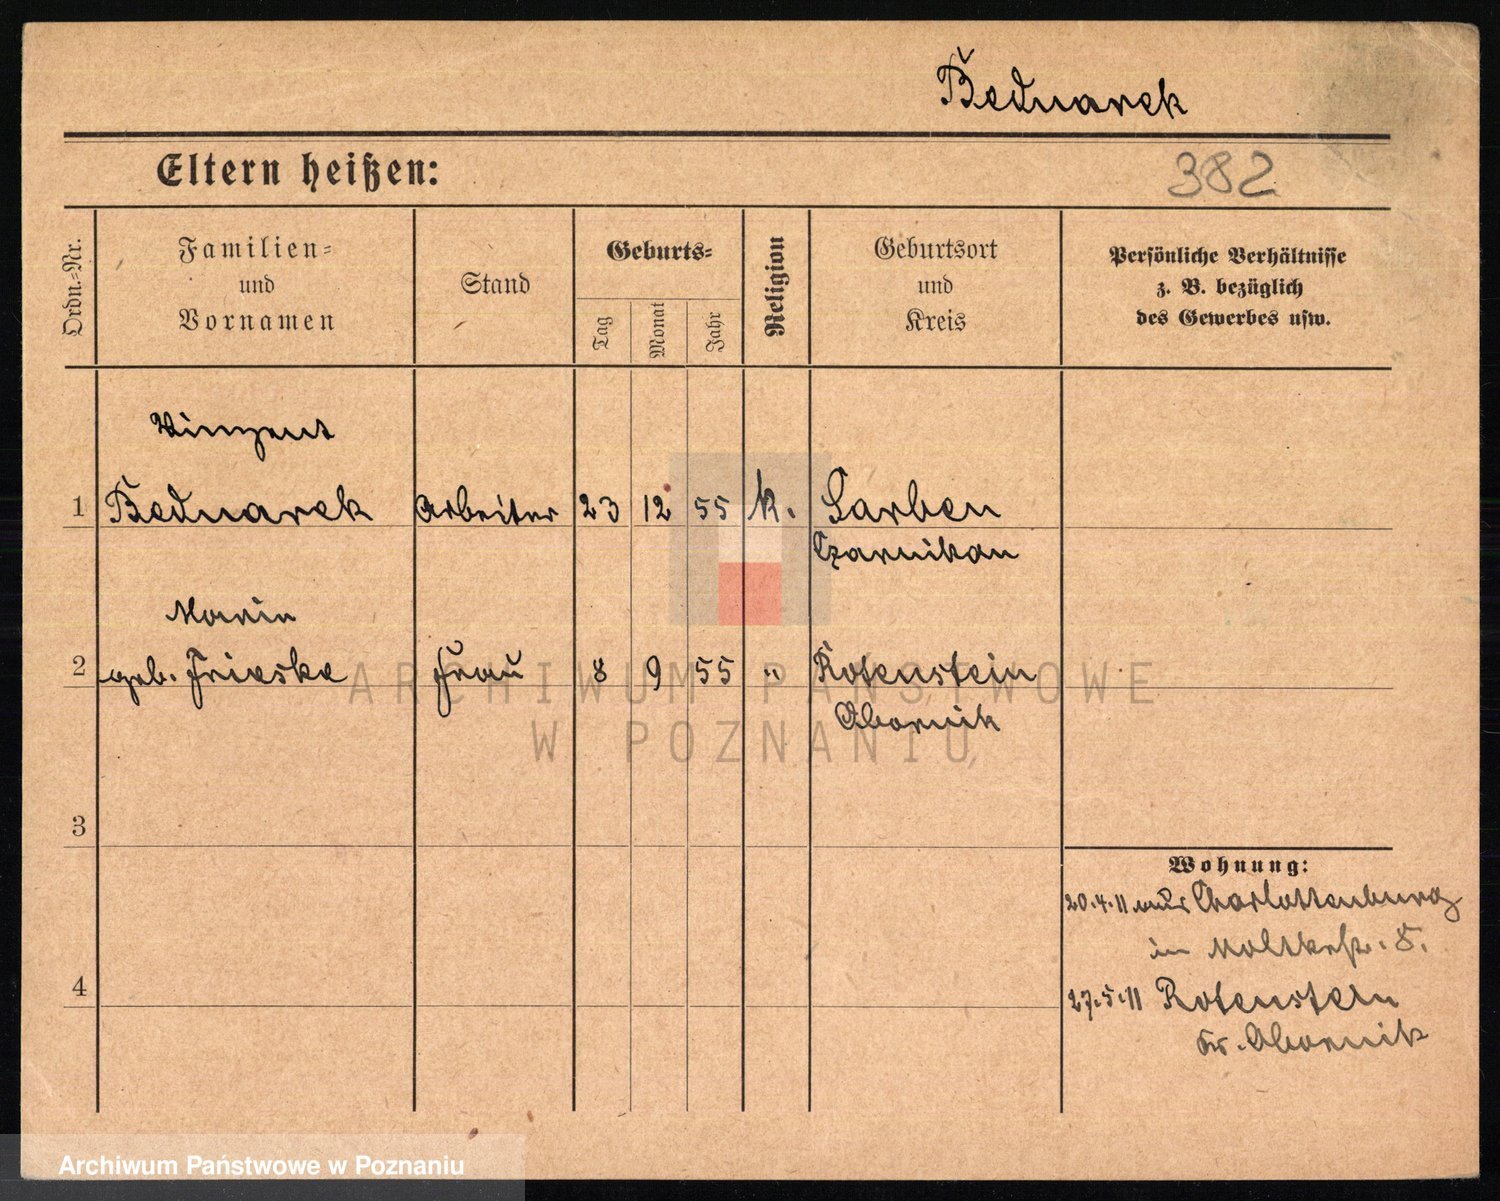 Bednarek
Eltern heißen:
382
Ordn.-Nr.
Familien-
und
Vornamen
Stand
Geburts-
Tag
Monat
Jahr
Religion
Geburtsort
und
Kreis
Persönliche Verhältnisse
z. B. bezüglich
des Gewerbes usw.
Vinzent
1 Bednarek Arbeiter 23 12 55 k. Sarben
Czarnikau
Maria
2 geb. Frieske Frau 8 9 55 " Rosenstein
Obornik
3
Wohnung:
20.4.11 aus Charlottenburg
in Moltkestr. 8.
4
27.5.11 Rosenstein
Kr. Obornik
ARCHIWUM PAŃSTWOWE
W POZNANIU
Archiwum Państwowe w Poznaniu